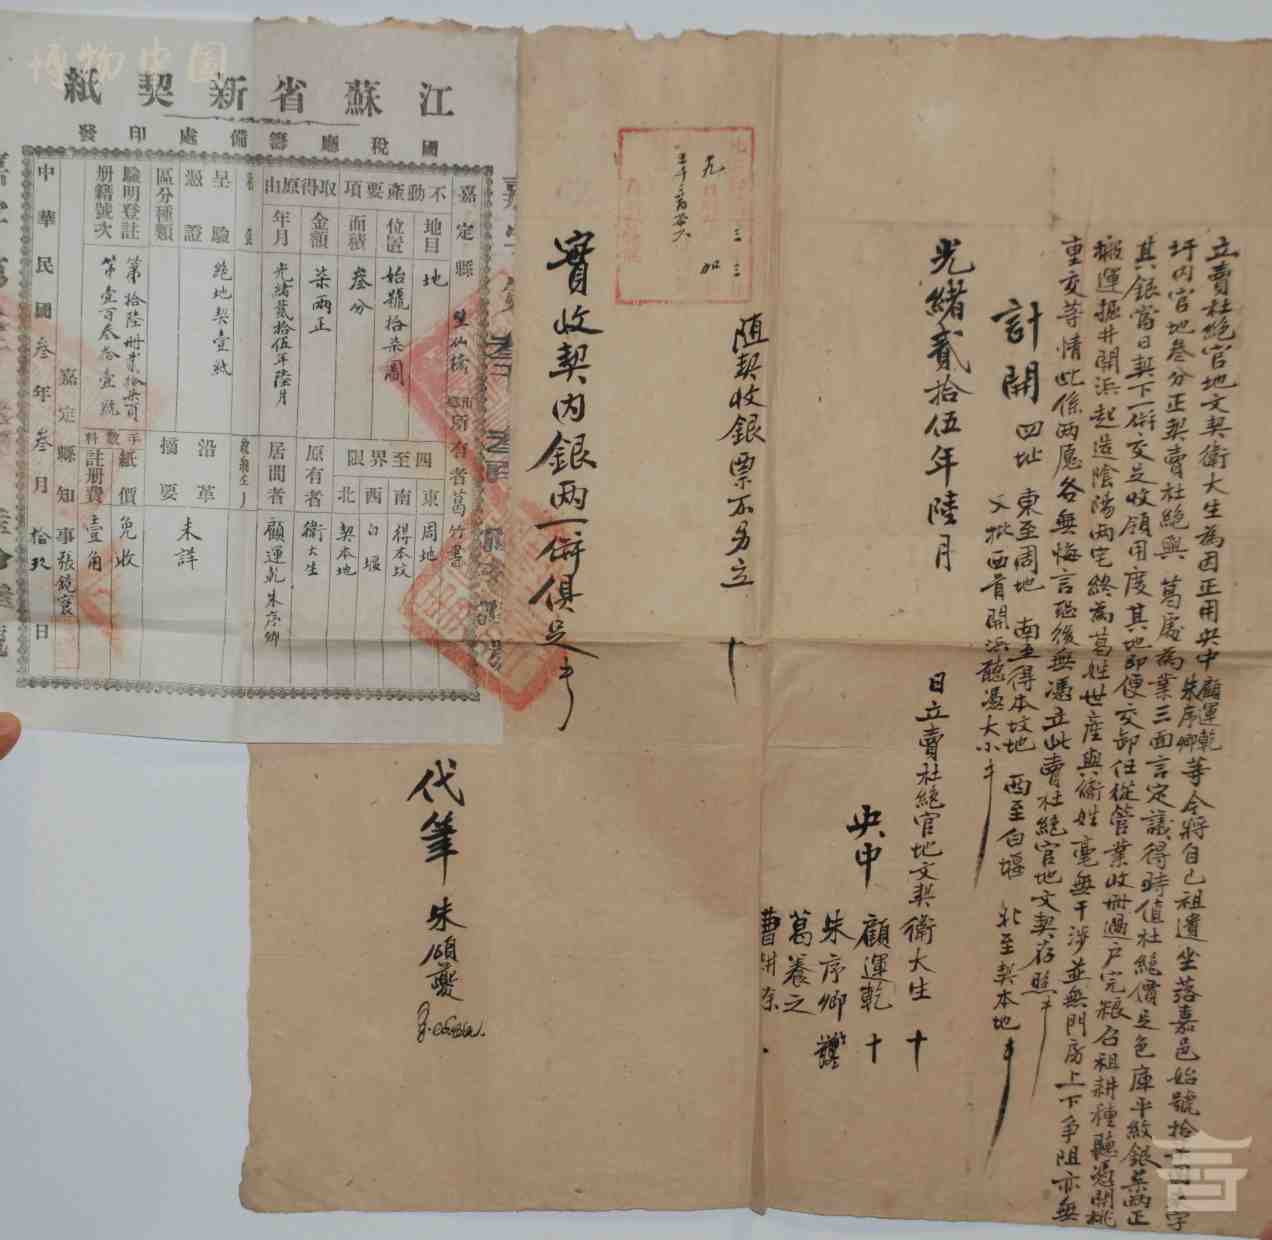 立賣杜絕官地文契衛大生為因正用央中顧運乾朱序卿等今將自己祖遺坐落嘉邑始號拾
圩內官地叁分正契賣杜絕與葛處為業三面言定議得時值杜絕價足色庫平紋銀柒兩正
其銀當日契下一併交足收領用度其地即便交卸任從管業收冊過戶完糧召租耕種聽憑開挑
搬運掘井開浜起造陰陽兩宅終為葛姓世產與衛姓毫無干涉並無門房上下爭阻亦無
重交等情此係兩愿各無悔言恐後無憑立此賣杜絕官地文契存照
計開 四址 東至周地 南至得本坟地 西至白堰 北至契本地
又批西首開浜聽憑大小
光緒貳拾伍年陸月 日立賣杜絕官地文契衛大生 十
央中 顧運乾 十
朱序卿
葛養之
曹耕
隨契收銀票不另立 十
實收契內銀兩一併俱足
代筆 朱頌夔
江蘇省新契紙
國稅廳籌備處印發
嘉定縣 所有者葛竹書
不動產要項
地目 地
位置 始號拾柒圖
面積 叁分
取得原由
金額 柒兩正
年月 光緒貳拾伍年陸月
四至界限
東 周地
南 得本坟
西 白堰
北 契本地
原有者 衛大生
居間者 顧運乾 朱序卿
呈驗憑證 絕地契壹紙
區分種類
沿革摘要 未詳
驗明登註冊籍號次 第拾陸冊貳拾柒頁 第壹百叁拾壹號
手數料
紙價 免收
註冊費 壹角
嘉定縣知事張鏡寰
中華民國叁年叁月拾玖日
博物中國